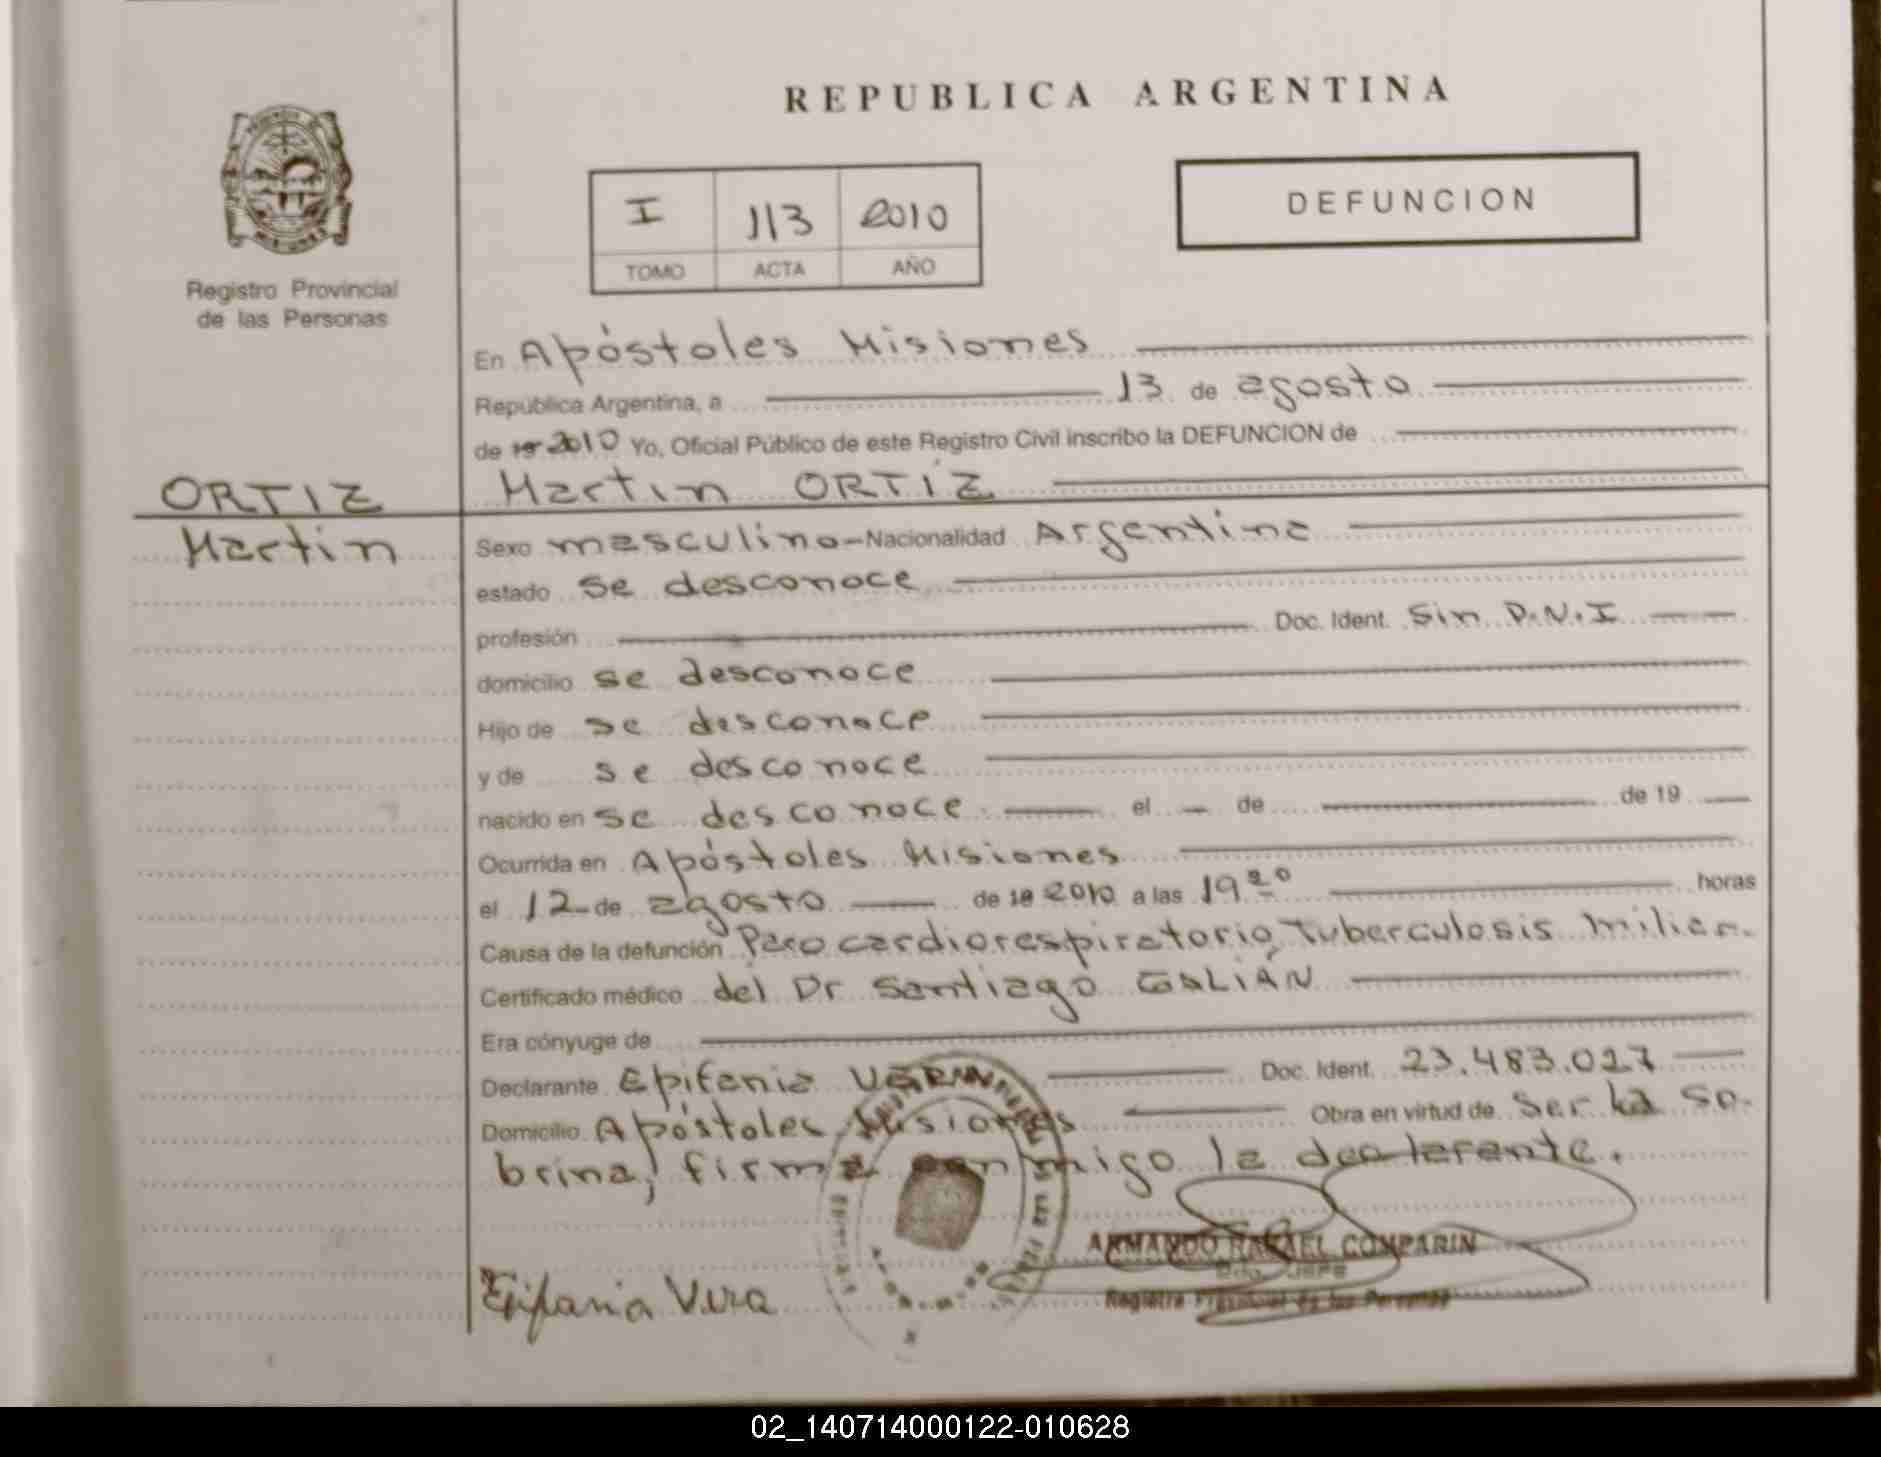 REPUBLICA ARGENTINA
I 113 2010
TOMO ACTA AÑO
DEFUNCION
Registro Provincial
de las Personas
En Apóstoles Misiones
República Argentina, a 13 de agosto
de 19 2010 Yo, Oficial Público de este Registro Civil inscribo la DEFUNCION de
Martin ORTIZ
ORTIZ
Martin
Sexo masculino - Nacionalidad Argentina
estado se desconoce
profesión Doc. Ident. Sin D.N.I
domicilio se desconoce
Hijo de se desconoce
y de se desconoce
nacido en se desconoce el de de 19
Ocurrida en Apóstoles Misiones
el 12 de agosto de 2010 a las 19 20 horas
Causa de la defunción Paro cardiorespiratorio, Tuberculosis miliar.
Certificado médico del Dr Santiago GALIÁN
Era cónyuge de
Declarante Epifania VERA Doc. Ident. 23.483.027
Domicilio Apóstoles Misiones Obra en virtud de Ser la so-
brina, firma conmigo la declarante.
ARMANDO RAFAEL COMPARIN
JEFE
Registro Provincial de las Personas
Epifania Vera
02_140714000122-010628